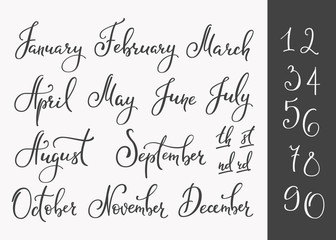 January February March
April May June July
August September th st
nd rd
October November December
1 2
3 4
5 6
7 8
9 0